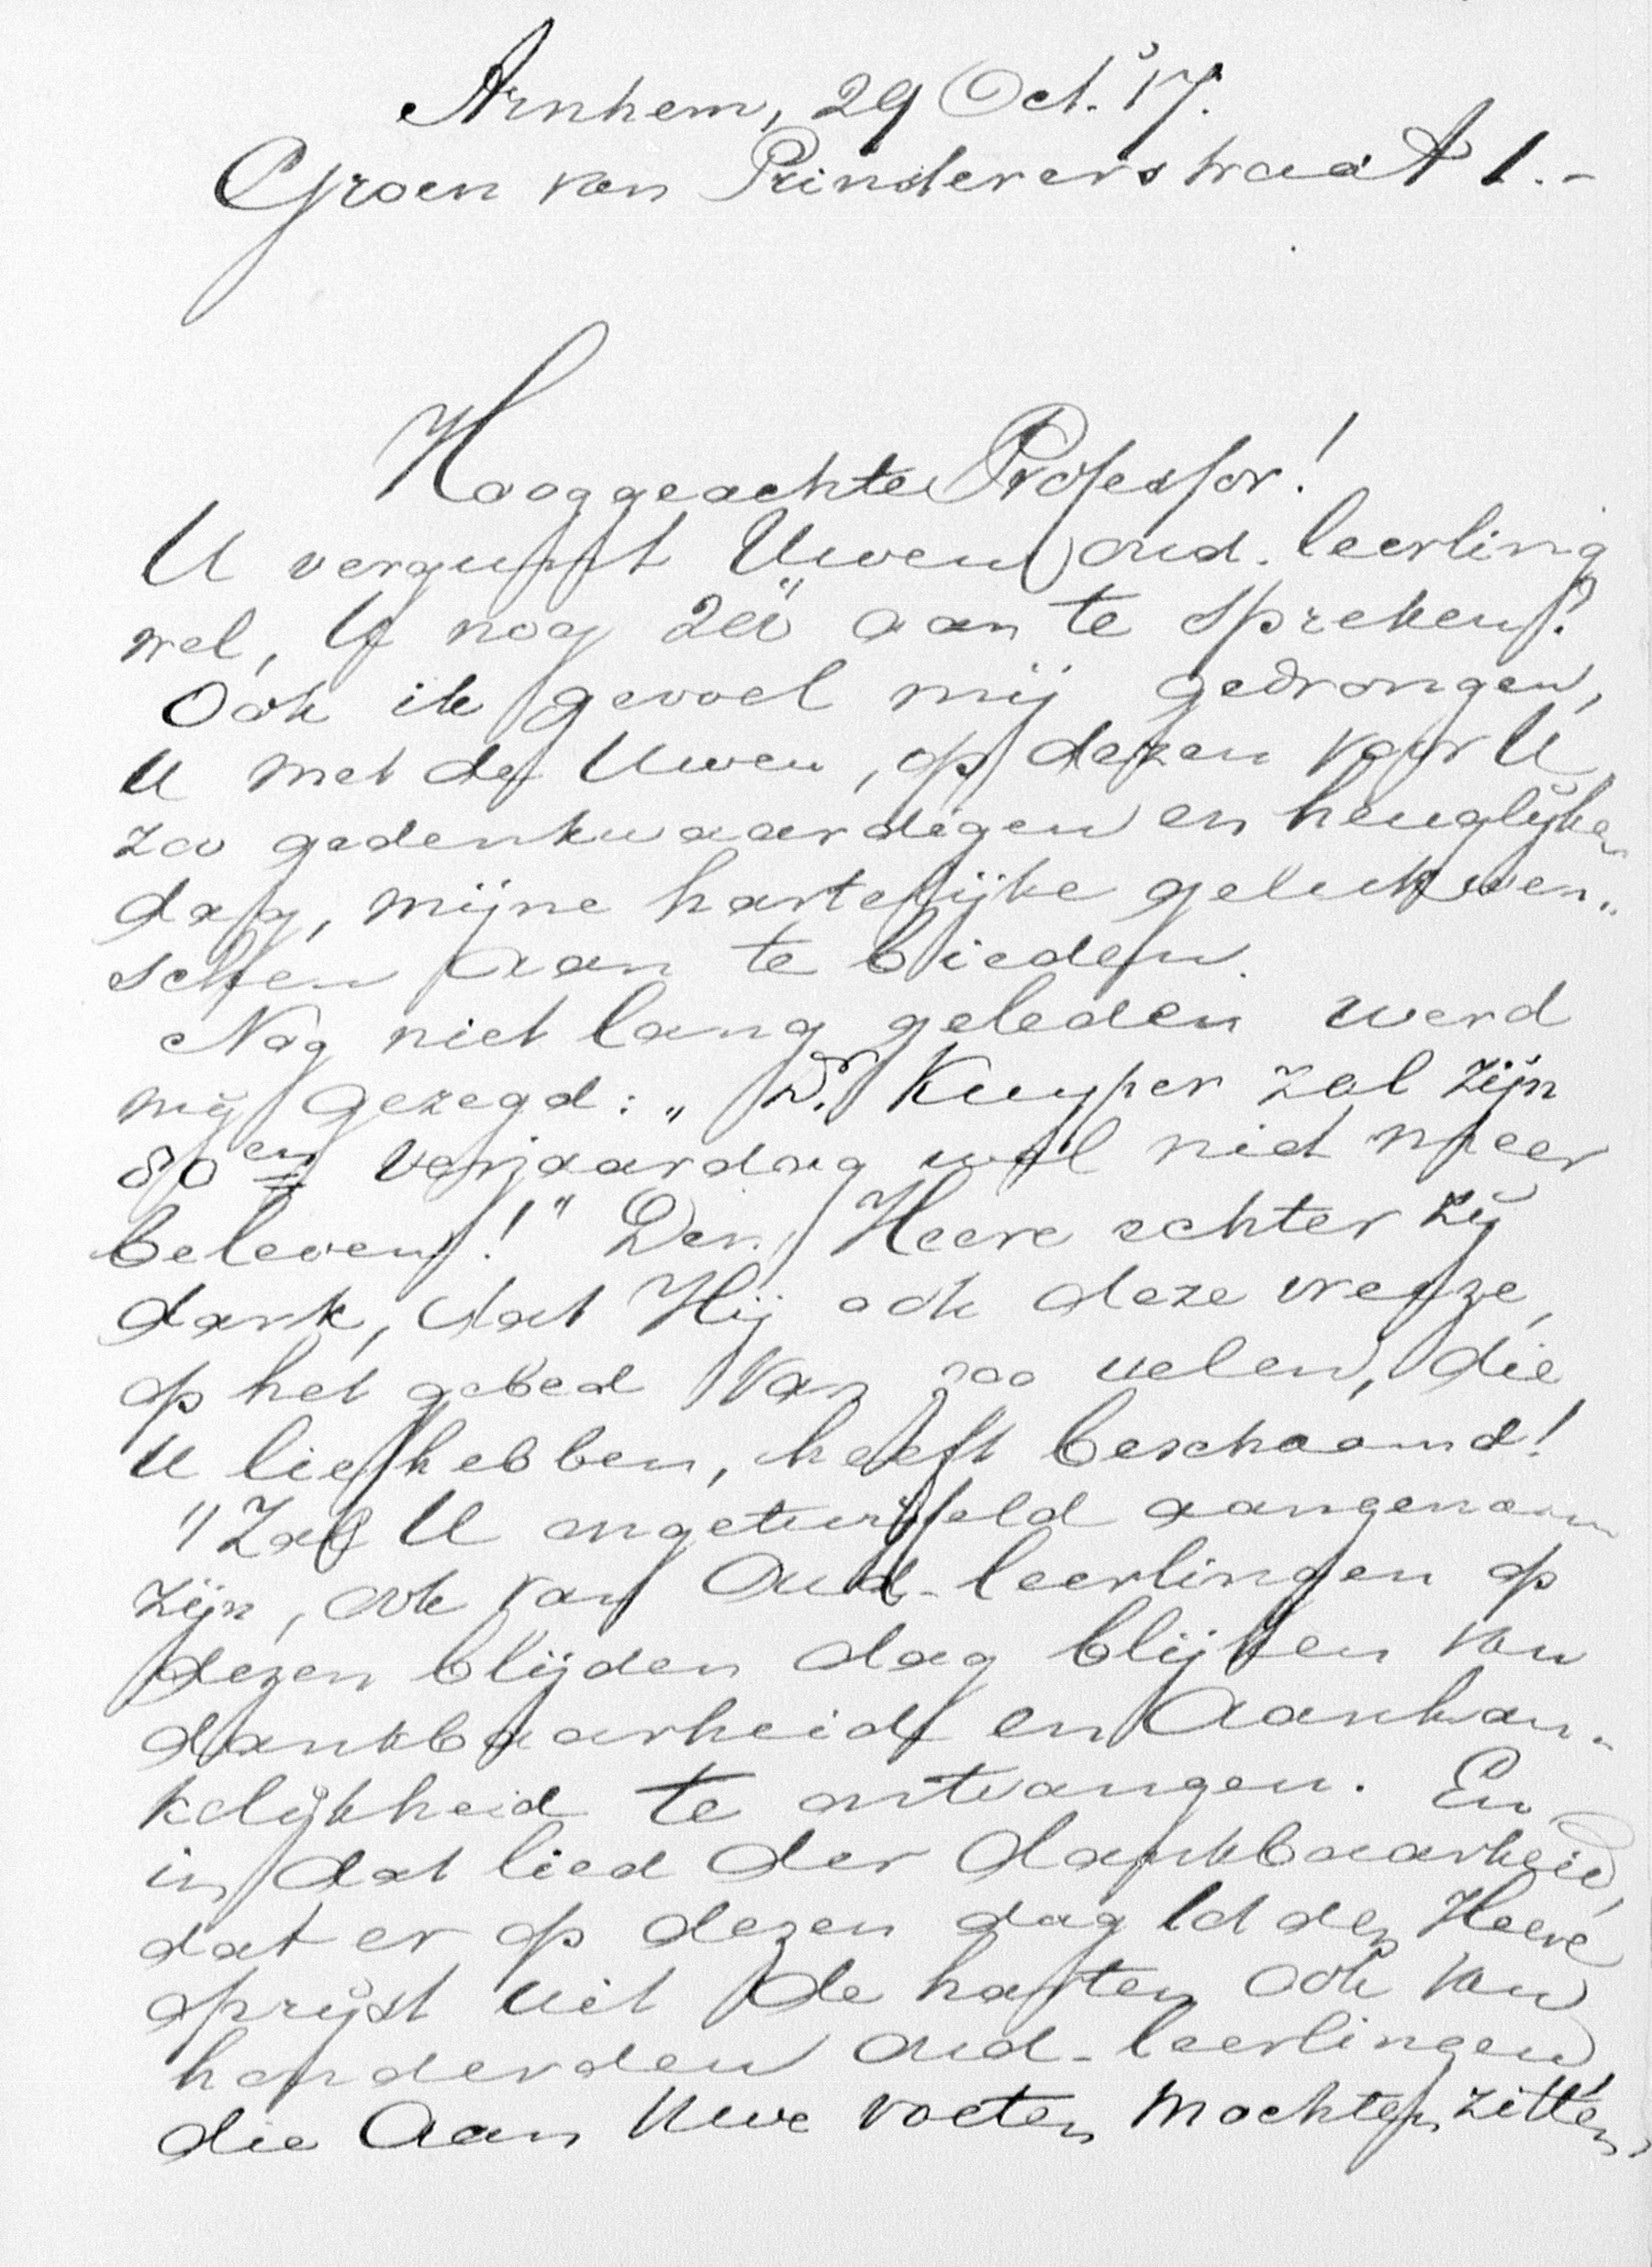 Arnhem, 29 Oct. '17.
Groen van Prinstererstraat 1.-
Hooggeachte Professor!
U vergunt Uwen oud-leerling
wel, U nog zóó aan te spreken?
Ook ik gevoel mij gedrongen,
U met de Uwen, op dezen voor U
zoo gedenkwaardigen en heuglijken
dag, mijne hartelijke gelukwen-
schen aan te bieden.
Nog niet lang geleden werd
mij gezegd: „Dr. Kuyper zal zijn
80en verjaardag wel niet meer
beleven!" Den Heere echter zij
dank, dat Hij ook deze vreeze,
op het gebed van zoo velen, die
U liefhebben, heeft beschaamd!
't Zal U ongetwijfeld aangenaam
zijn, ook van Oud-leerlingen op
dezen blijden dag blijken van
dankbaarheid en aanhan-
kelijkheid te ontvangen. En
in dat lied der dankbaarheid,
dat er op dezen dag tot den Heere
oprijst uit de harten ook van
honderden oud-leerlingen,
die aan Uwe voeten mochten zitten,